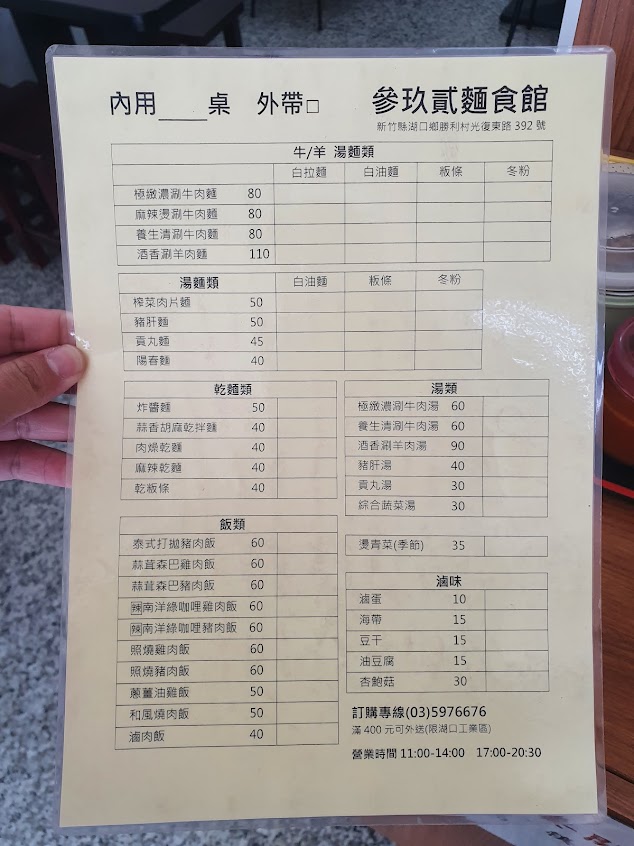 內用____桌 外帶□ 參玖貳麵食館
新竹縣湖口鄉勝利村光復東路 392 號
牛/羊 湯麵類
白拉麵 白油麵 粄條 冬粉
極緻濃涮牛肉麵 80
麻辣燙涮牛肉麵 80
養生清涮牛肉麵 80
酒香涮羊肉麵 110
湯麵類 白油麵 粄條 冬粉
榨菜肉片麵 50
豬肝麵 50
貢丸麵 45
陽春麵 40
乾麵類
炸醬麵 50
蒜香胡麻乾拌麵 40
肉燥乾麵 40
麻辣乾麵 40
乾粄條 40
湯類
極緻濃涮牛肉湯 60
養生清涮牛肉湯 60
酒香涮羊肉湯 90
豬肝湯 40
貢丸湯 30
綜合蔬菜湯 30
燙青菜(季節) 35
飯類
泰式打拋豬肉飯 60
蒜茸森巴雞肉飯 60
蒜茸森巴豬肉飯 60
辣南洋綠咖哩雞肉飯 60
辣南洋綠咖哩豬肉飯 60
照燒雞肉飯 60
照燒豬肉飯 60
蔥薑油雞飯 50
和風燒肉飯 50
滷肉飯 40
滷味
滷蛋 10
海帶 15
豆干 15
油豆腐 15
杏鮑菇 30
訂購專線(03)5976676
滿 400 元可外送(限湖口工業區)
營業時間 11:00-14:00 17:00-20:30